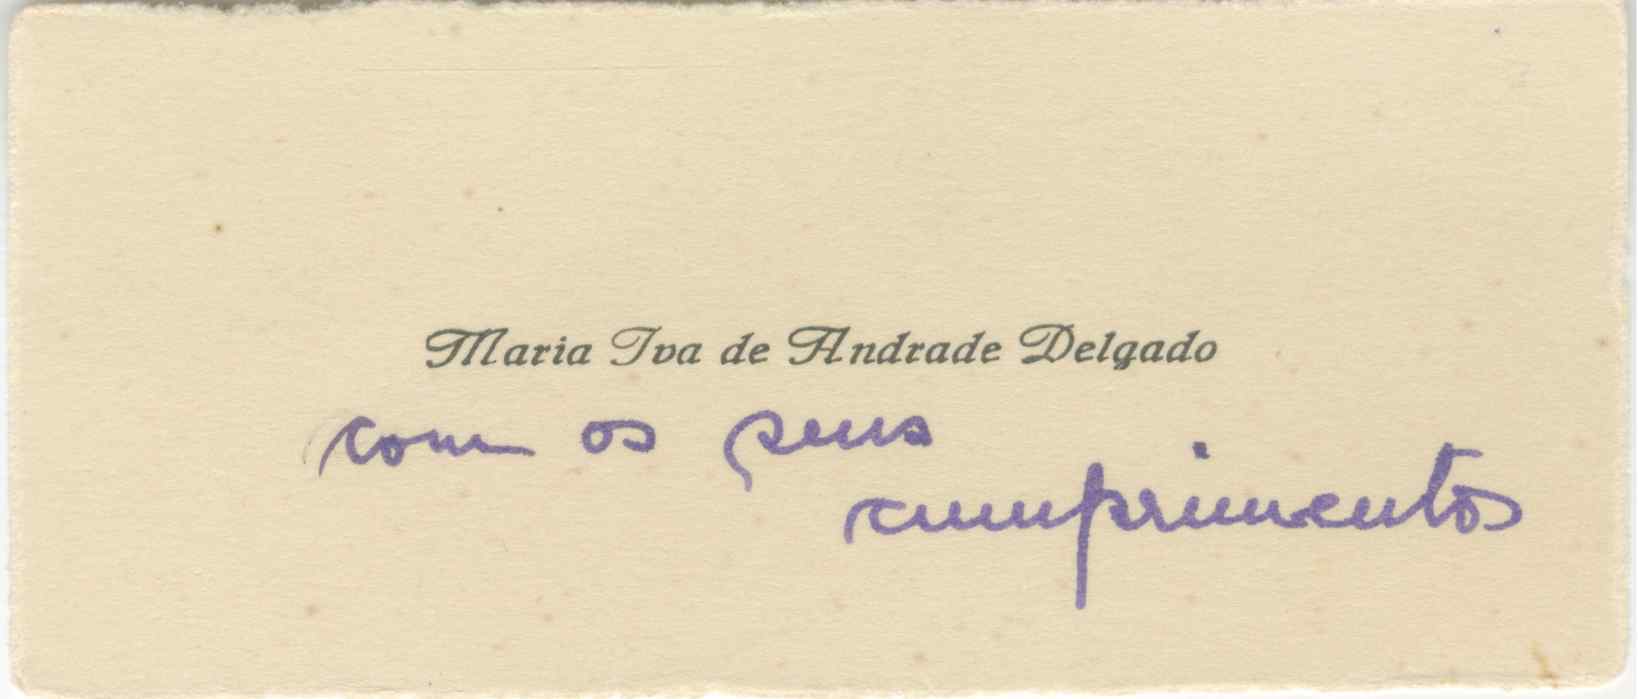 Maria Iva de Andrade Delgado
com os seus
cumprimentos